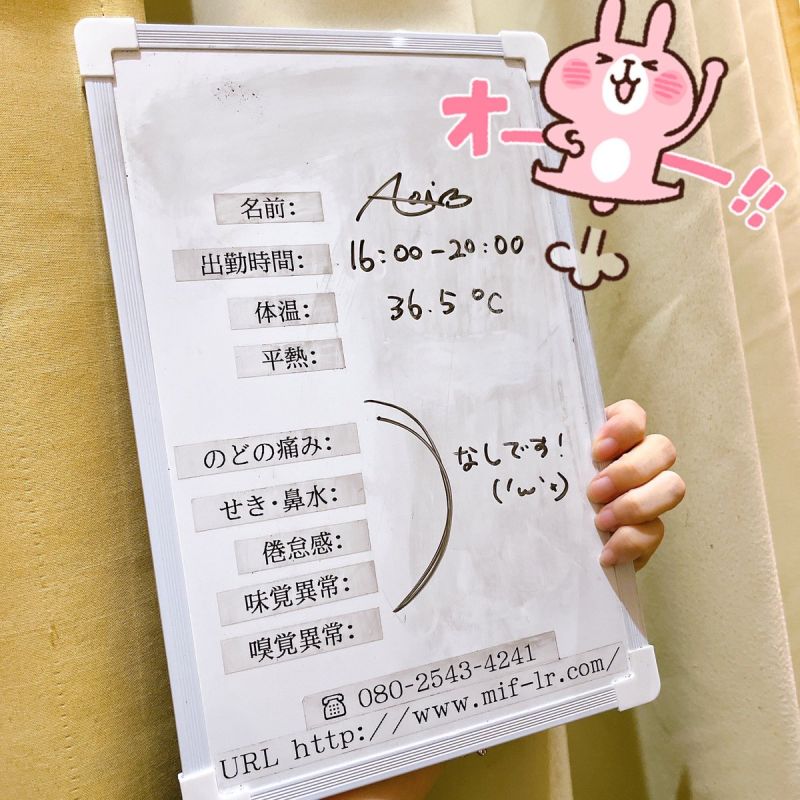 オーー!!
名前: Aoi
出勤時間: 16:00-20:00
体温: 36.5℃
平熱:
のどの痛み:
せき・鼻水:
なしです!
('ω'*)
倦怠感:
味覚異常:
嗅覚異常:
☎ 080-2543-4241
URL http://www.mif-lr.com/